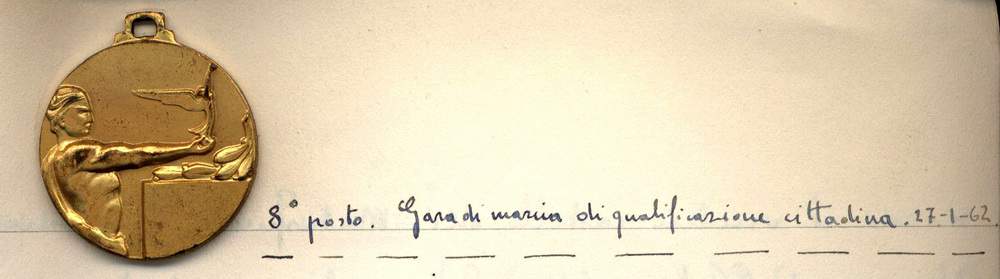 8° posto. Gara di marcia di qualificazione cittadina. 27-1-62.